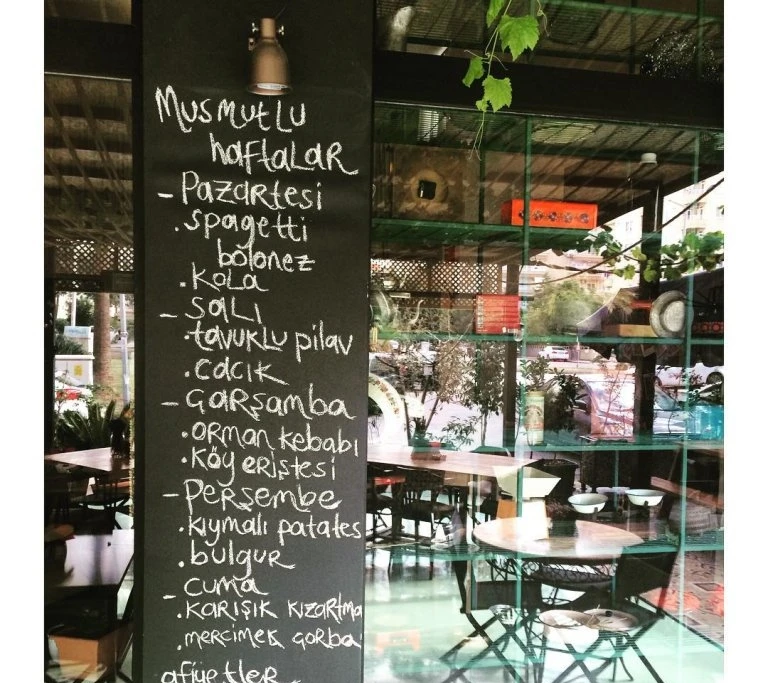 Musmutlu
haftalar
- Pazartesi
. spagetti
bolonez
. kola
- salı
. tavuklu pilav
. cacık
- Çarşamba
. orman kebabı
. köy eriştesi
- Perşembe
. kıymalı patates
. bulgur
- cuma
. karışık kızartma
. mercimek çorba
afiyetler